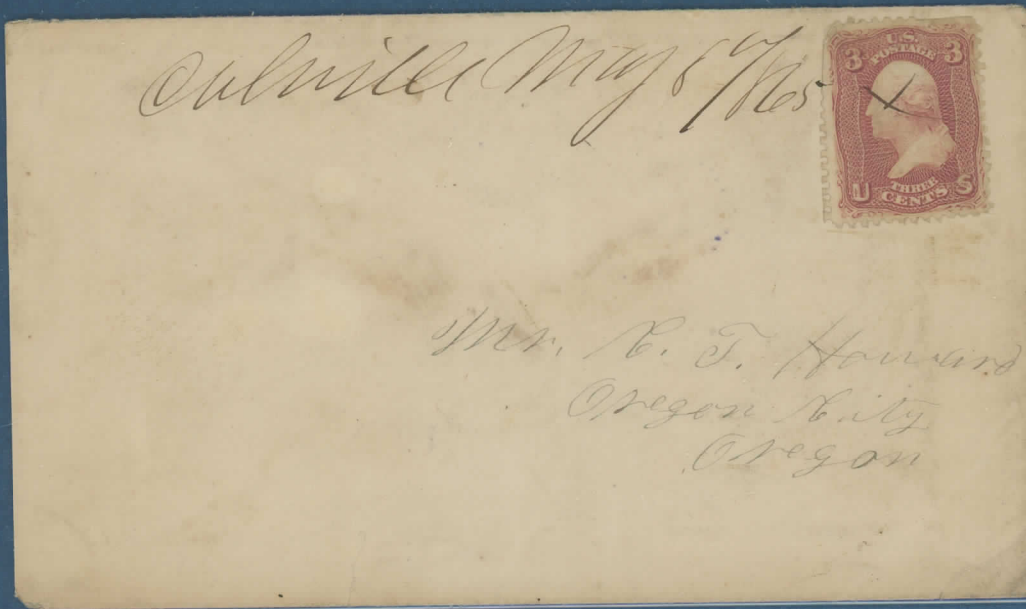 Colville May 8th/65
U.S.
POSTAGE
3 3
THREE
U CENTS S
Mr. C. T. Howard
Oregon City
Oregon